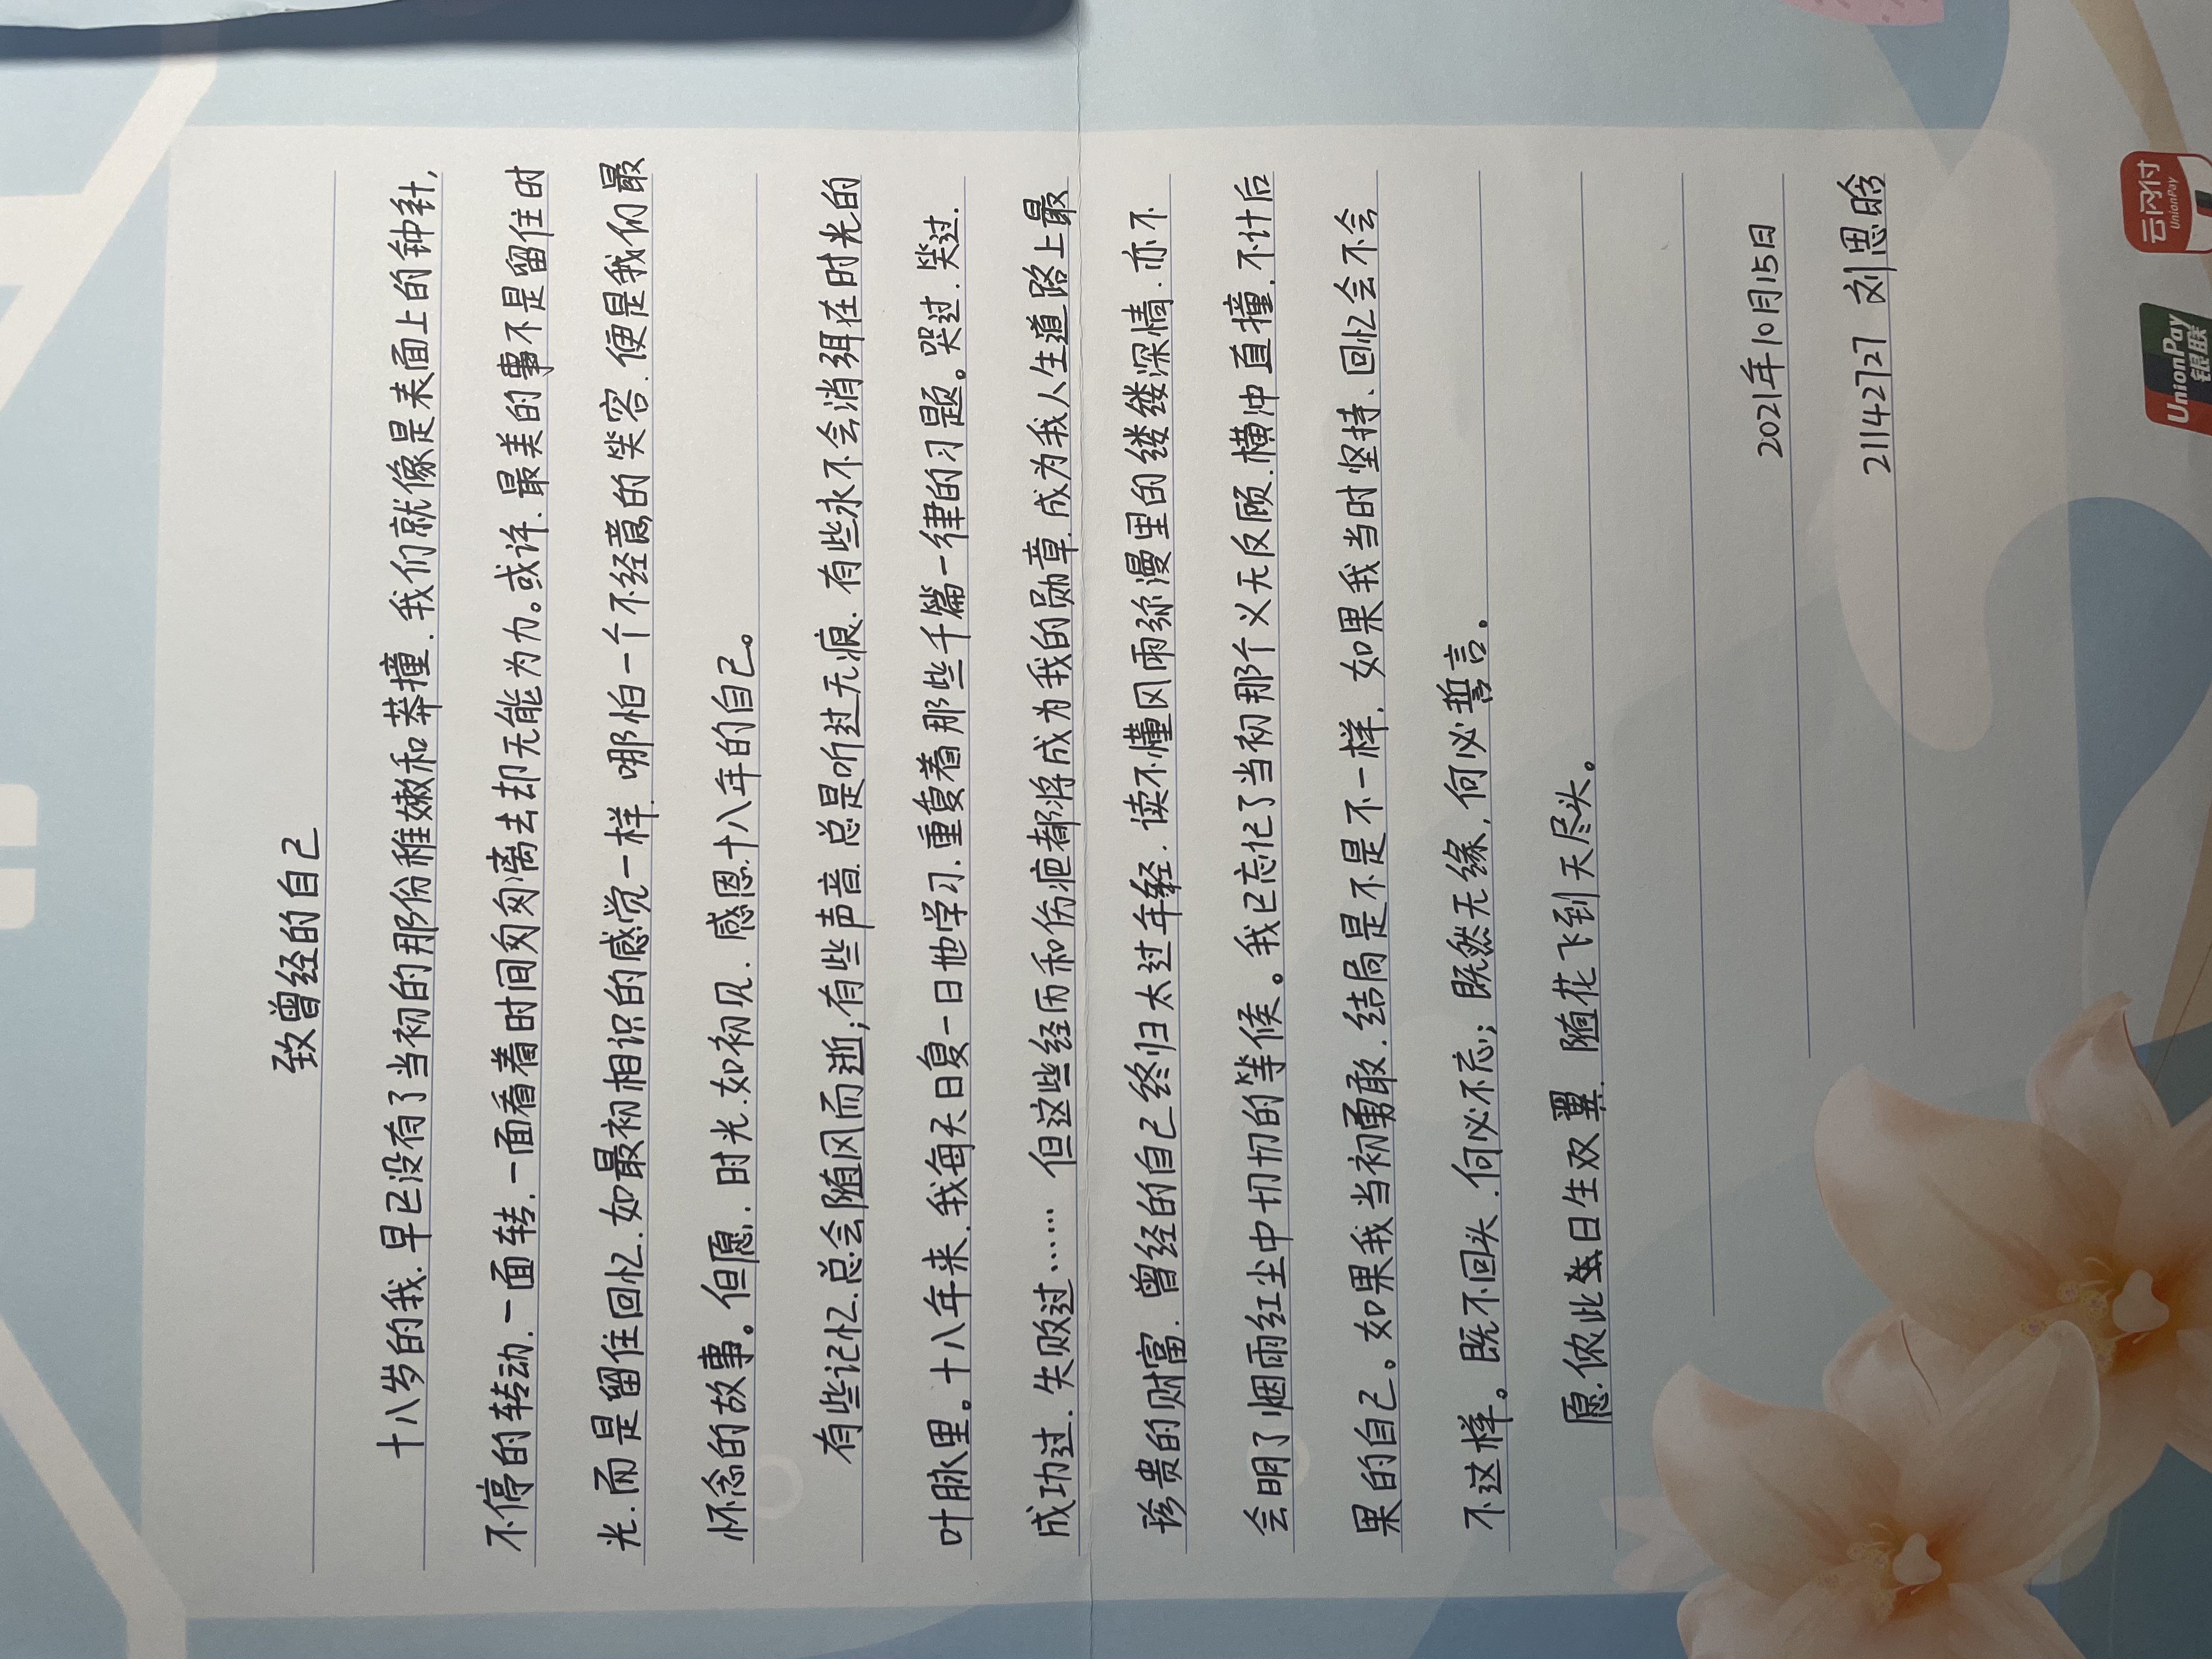 致曾经的自己
十八岁的我.早已没有了当初的那份稚嫩和莽撞.我们就像是表面上的钟针,
不停的转动.一面转.一面看着时间匆匆离去却无能为力。或许.最美的事不是留住时
光.而是留住回忆.如最初相识的感觉一样.哪怕一个不经意的笑容.便是我们最
怀念的故事。但愿.时光.如初见.感恩十八年的自己。
有些记忆.总会随风而逝;有些声音.总是听过无痕.有些永不会消弭在时光的
叶脉里。十八年来.我每天日复一日地学习.重复着那些千篇一律的习题。哭过.笑过.
成功过.失败过…… 但这些经历和伤疤都将成为我的勋章.成为我人生道路上最
珍贵的财富.曾经的自己终归太过年轻.读不懂风雨弥漫里的缕缕深情.亦不
会明了烟雨红尘中切切的等候。我已忘记了当初那个义无反顾.横冲直撞.不计后
果的自己。如果我当初勇敢.结局是不是不一样,如果我当时坚持.回忆会不会
不这样。既不回头.何必不忘;既然无缘,何必誓言。
愿.侬此日生双翼.随花飞到天尽头。
2021年10月15日
21142727 刘思晗
UnionPay
银联
云闪付
UnionPay